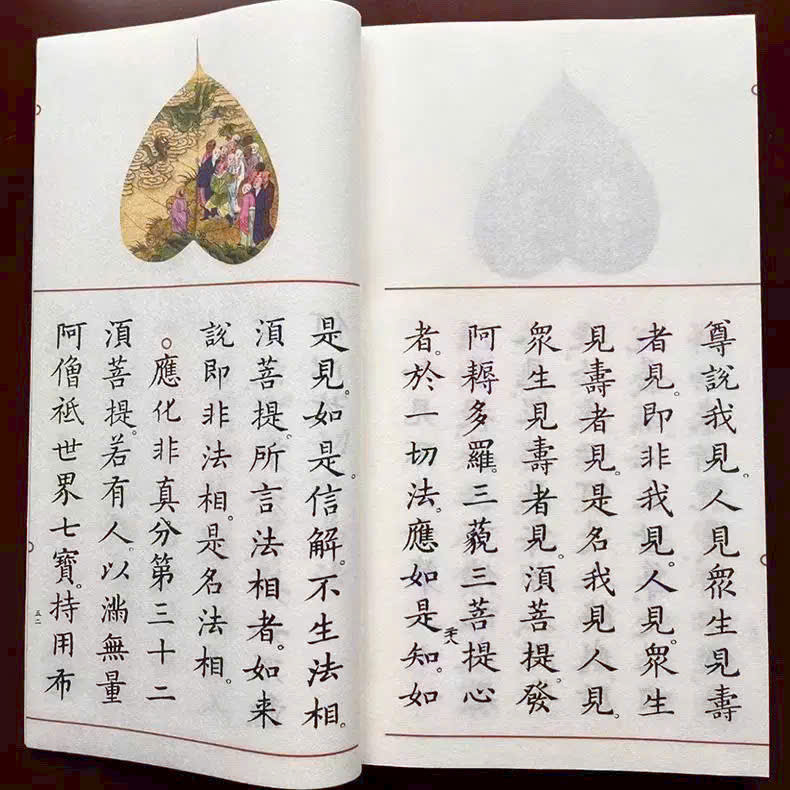 尊說我見。人見眾生見壽
者見。即非我見。人見。眾生
見壽者見。是名我見人見。
眾生見壽者見。湏菩提。發
阿耨多羅。三藐三菩提心
者。於一切法。應如是知。如
是見。如是。信解。不生法相。
湏菩提。所言法相者。如来
說即非法相。是名法相。
○應化非真。分第三十二
湏菩提。若有人。以滿無量
阿僧祇世界七寶。持用布
五二